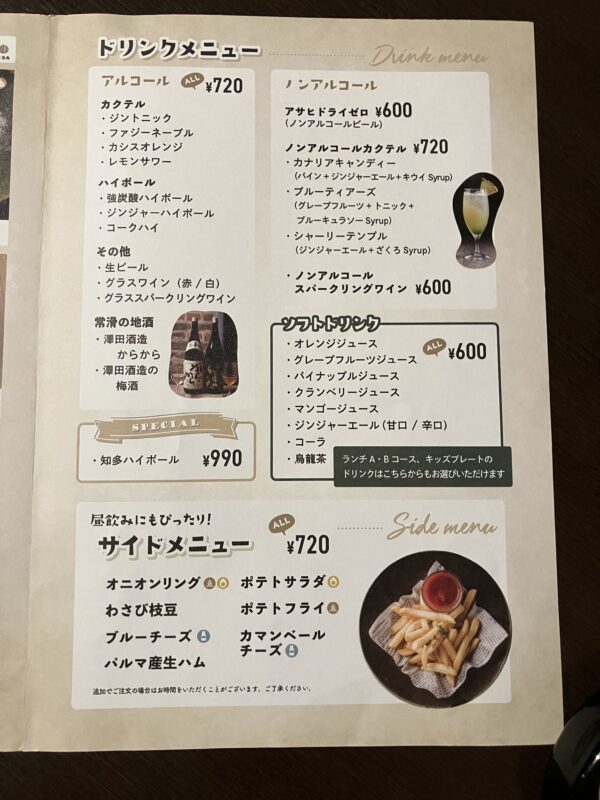 ドリンクメニュー
Drink menu
アルコール ALL ¥720
カクテル
・ジントニック
・ファジーネーブル
・カシスオレンジ
・レモンサワー
ハイボール
・強炭酸ハイボール
・ジンジャーハイボール
・コークハイ
その他
・生ビール
・グラスワイン（赤 / 白）
・グラススパークリングワイン
常滑の地酒
・澤田酒造
からから
・澤田酒造の
梅酒
SPECIAL
・知多ハイボール ¥990
ノンアルコール
アサヒドライゼロ ¥600
（ノンアルコールビール）
ノンアルコールカクテル ¥720
・カナリアキャンディー
（パイン＋ジンジャーエール＋キウイ Syrup）
・ブルーティアーズ
（グレープフルーツ＋トニック＋
ブルーキュラソー Syrup）
・シャーリーテンプル
（ジンジャーエール＋ざくろ Syrup）
・ノンアルコール
スパークリングワイン ¥600
ソフトドリンク
ALL ¥600
・オレンジジュース
・グレープフルーツジュース
・パイナップルジュース
・クランベリージュース
・マンゴージュース
・ジンジャーエール（甘口 / 辛口）
・コーラ
・烏龍茶
ランチ A・B コース、キッズプレートの
ドリンクはこちらからもお選びいただけます
昼飲みにもぴったり!
サイドメニュー ALL ¥720
Side menu
オニオンリング
ポテトサラダ
わさび枝豆
ポテトフライ
ブルーチーズ
カマンベール
チーズ
パルマ産生ハム
追加でご注文の場合はお時間をいただくことがございます。ご了承ください。